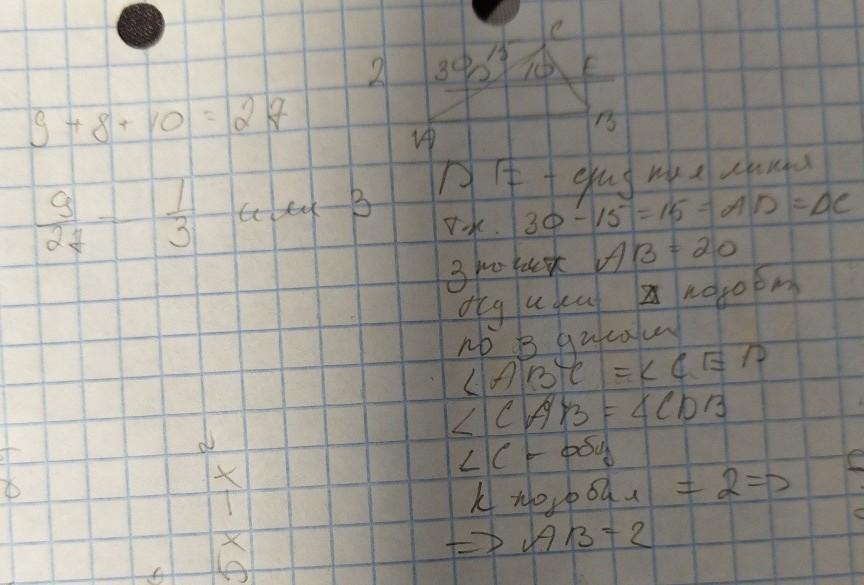 9 + 8 + 10 = 27
9/27 = 1/3 или 3
2
C
30 15
D 10 E
A B
DE - средняя линия
т.к. 30 - 15 = 15 = AD = DC
значит AB = 20
ну или подобн
по 3 углам
∠ABC = ∠CED
∠CAB = ∠CDB
∠C - общ
k подобия = 2 =>
=> AB = 2
5x - x²